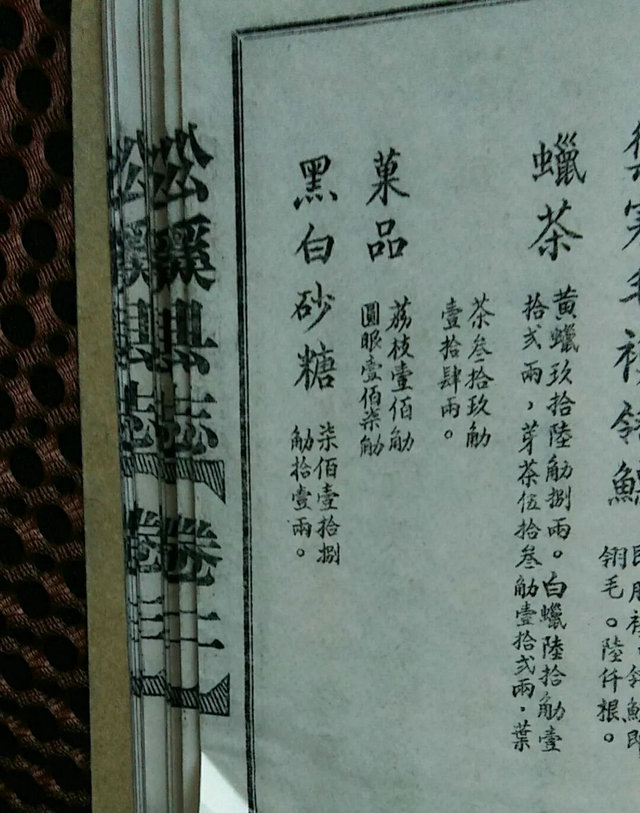 翎鰾
翎毛。陸仟根。
蠟茶
黃蠟玖拾陸觔捌兩。白蠟陸拾觔壹
拾弍兩，芽茶伍拾叁觔壹拾弍兩，葉
茶叁拾玖觔
壹拾肆兩。
菓品
荔枝壹佰觔
圓眼壹佰柒觔
黑白砂糖
柒佰壹拾捌
觔拾壹兩。
松溪縣志
卷三